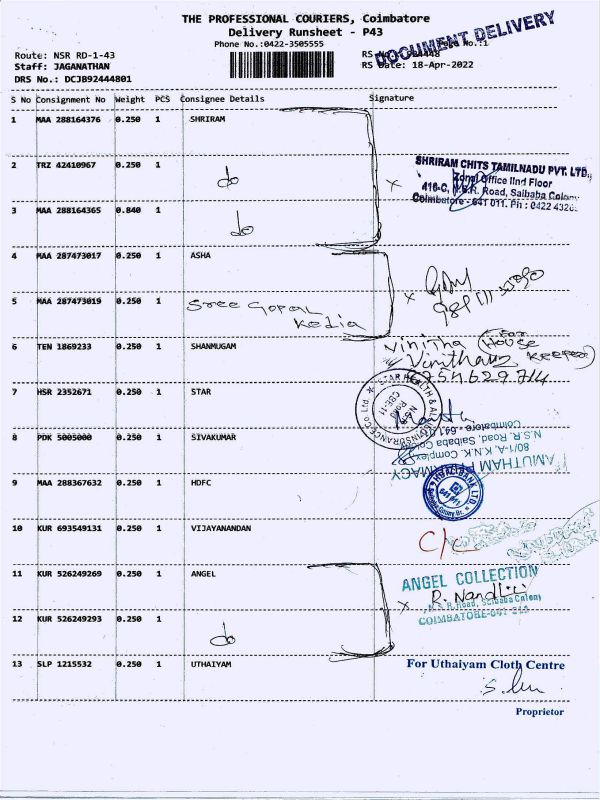 THE PROFESSIONAL COURIERS, Coimbatore
Delivery Runsheet - P43
Phone No.:0422-3505555
DOCUMENT DELIVERY
Route: NSR RD-1-43
Staff: JAGANATHAN
RS Date: 18-Apr-2022
DRS No.: DCJB92444801
S No Consignment No Weight PCS Consignee Details Signature
1 MAA 288164376 0.250 1 SHRIRAM
2 TRZ 42410967 0.250 1 do
SHRIRAM CHITS TAMILNADU PVT. LTD.,
Zonal Office IInd Floor
416-C, N.S.R. Road, Saibaba Colony
Coimbatore - 641 011. Ph : 0422 432
3 MAA 288164365 0.840 1 do
4 MAA 287473017 0.250 1 ASHA
5 MAA 287473019 0.250 1 Sree Gopal Kedia
6 TEN 1869233 0.250 1 SHANMUGAM
Vinitha (House Keeper)
7 HSR 2352671 0.250 1 STAR
STAR HEALTH & ALLIED INSURANCE Co Ltd
N.S.R. Road
CBE-11
8 PDK 5005000 0.250 1 SIVAKUMAR
AMUTHAM PHARMACY
80/1-A, K.N.K. Complex
N.S.R. Road, Saibaba Colony
Coimbatore - 641
9 MAA 288367632 0.250 1 HDFC
HDFC BANK LTD
10 KUR 693549131 0.250 1 VIJAYANANDAN
C/c
11 KUR 526249269 0.250 1 ANGEL
ANGEL COLLECTION
R. Nandhi
N.S.R.Road, Saibaba Colony
COIMBATORE-641
12 KUR 526249293 0.250 1 do
13 SLP 1215532 0.250 1 UTHAIYAM
For Uthaiyam Cloth Centre
Proprietor